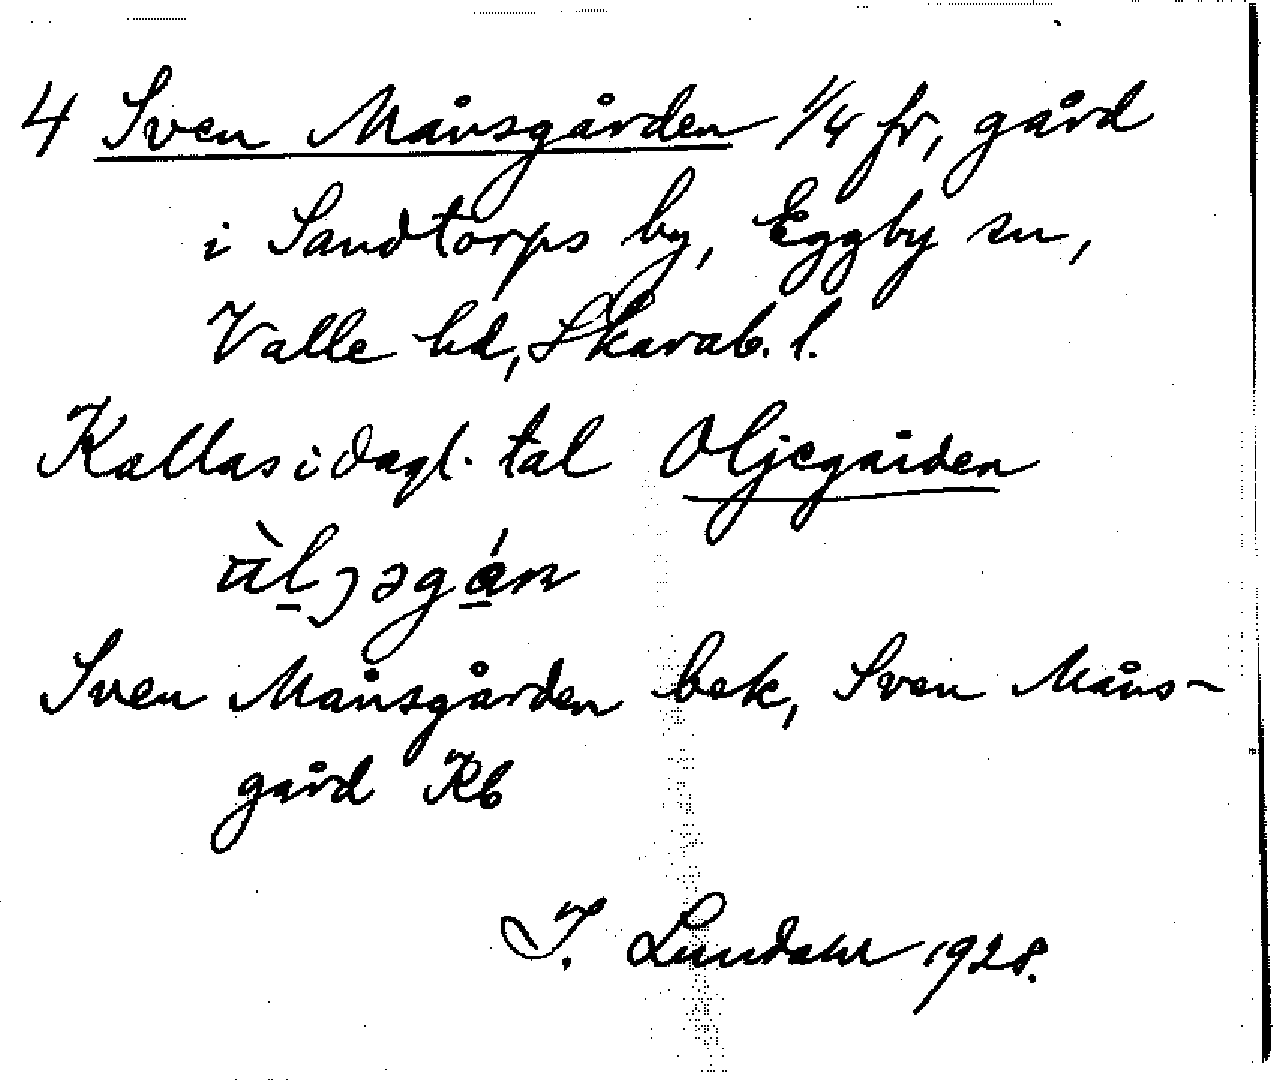 4 Sven Månsgården 1/4 fr, gård
i Sandtorps by, Eggby sn,
Valle hd, Skarab. l.
Kallas i dagl. tal Oljegården
Sven Månsgården bek, Sven Måns-
gård Kb
I. Lundahl 1928.